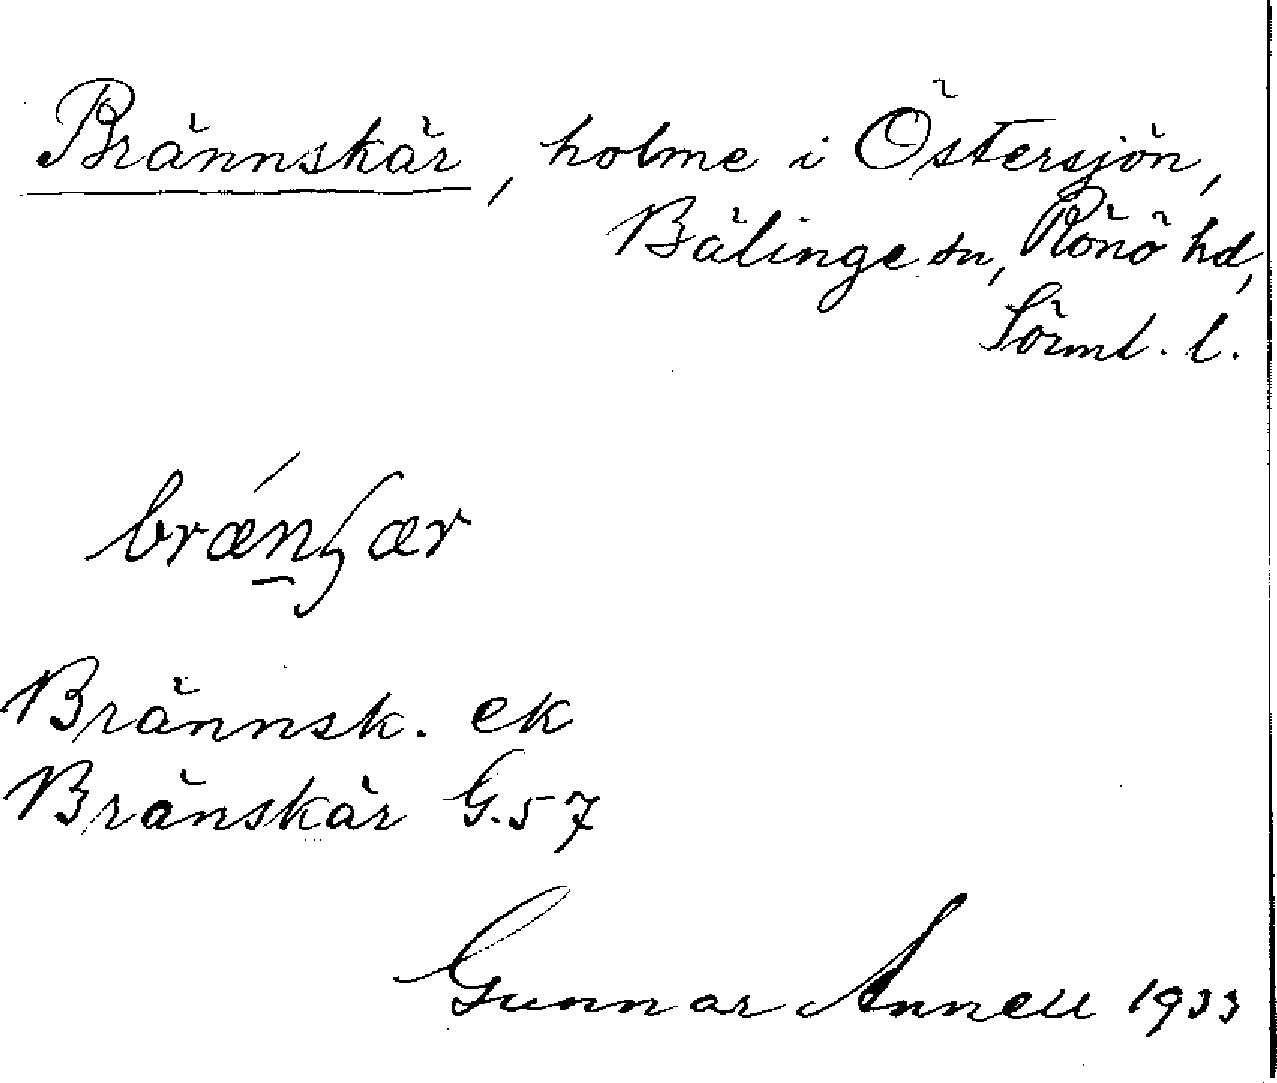 Brännskär, holme i Östersjön,
Bälinge sn, Rönö hd,
Sörml. l.
brǽn̲ʃær
Brännsk. ek
Bränskär G.57
Gunnar Annell 1933